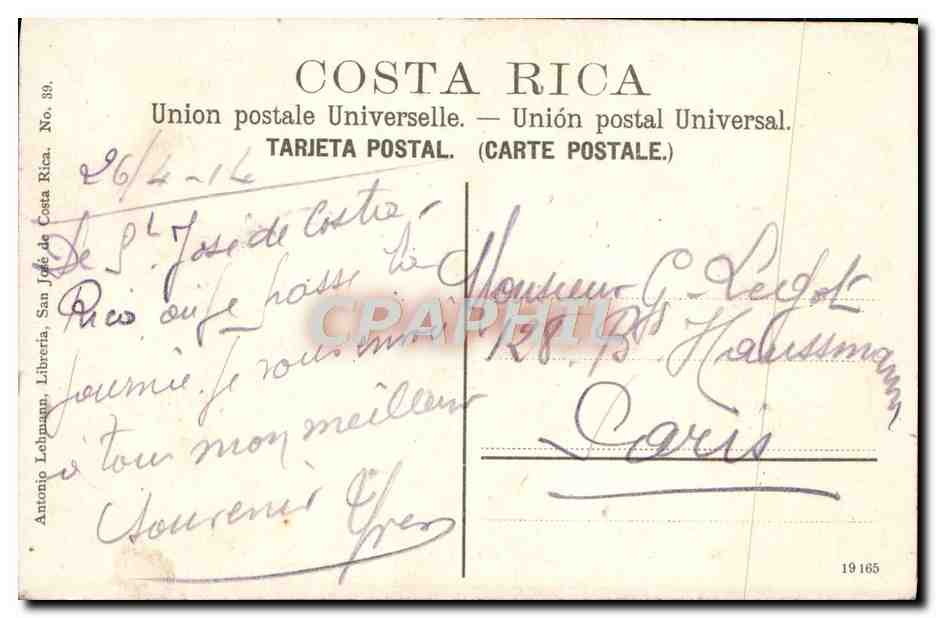 COSTA RICA
Union postale Universelle. — Unión postal Universal.
TARJETA POSTAL. (CARTE POSTALE.)
Antonio Lehmann, Libreria, San José de Costa Rica. No. 39.
26/4-14
De St José de Costa-
Rica où je passe la
journée je vous envoie
à tous mon meilleur
souvenir Yves
Monsieur G. Legot
128. Bd Haussmann
Paris
CPAPHIL
19165